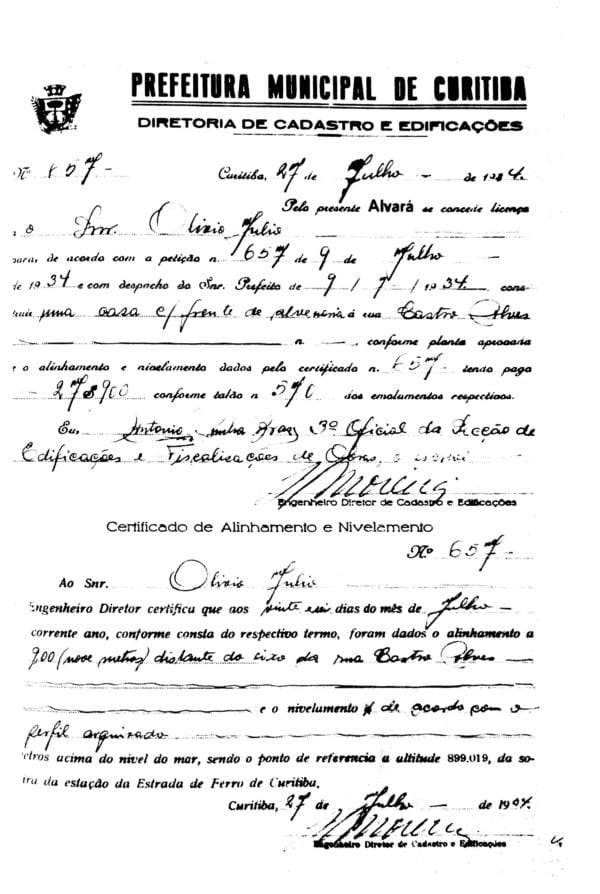 PREFEITURA MUNICIPAL DE CURITIBA
DIRETORIA DE CADASTRO E EDIFICAÇÕES
Nº 657-
Curitiba, 27 de Julho - de 1934.
Pelo presente Alvará se concede licença
o Snr. Olivio Julio
para, de acordo com a petição n. 657 de 9 de Julho
de 1934 e com despacho do Snr. Prefeito de 9 / 7 / 1934 cons-
uma casa c/ frente de alvenaria á rua Castro Alves
n. conforme planta aprovada
e o alinhamento e nivelamento dados pelo certificado n. 657 tendo pago
27$900 conforme talão n 570 dos emolumentos respectivos.
Eu, Antonio 3º Oficial da Secção de
Edificações e Fiscalisações de Obras, o escrevi
Engenheiro Diretor de Cadastro e Edificações
Certificado de Alinhamento e Nivelamento
Nº 657-
Ao Snr. Olivio Julio
Engenheiro Diretor certifica que aos vinte dias do mês de Julho -
corrente ano, conforme consta do respectivo termo, foram dados o alinhamento a
9,00 (nove metros) distante do eixo da rua Castro Alves
e o nivelamento de acordo com o
perfil arquivado
etros acima do nivel do mar, sendo o ponto de referencia a altitude 899.019, da so-
ira da estação da Estrada de Ferro de Curitiba.
Curitiba, 27 de Julho - de 1934.
Engenheiro Diretor de Cadastro e Edificações